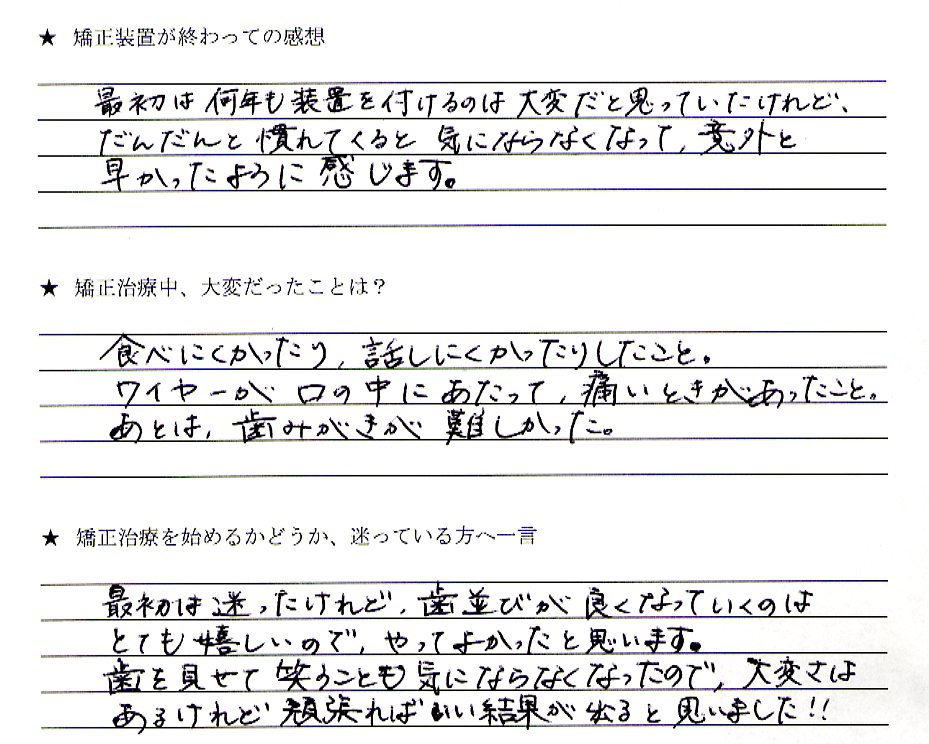 ★ 矯正装置が終わっての感想
最初は何年も装置を付けるのは大変だと思っていたけれど、
だんだんと慣れてくると気にならなくなって、意外と
早かったように感じます。
★ 矯正治療中、大変だったことは？
食べにくかったり、話しにくかったりしたこと。
ワイヤーが口の中にあたって、痛いときがあったこと。
あとは、歯みがきが難しかった。
★ 矯正治療を始めるかどうか、迷っている方へ一言
最初は迷ったけれど、歯並びが良くなっていくのは
とても嬉しいので、やってよかったと思います。
歯を見せて笑うことも気にならなくなったので、大変さは
あるけれど頑張ればいい結果が出ると思いました!!